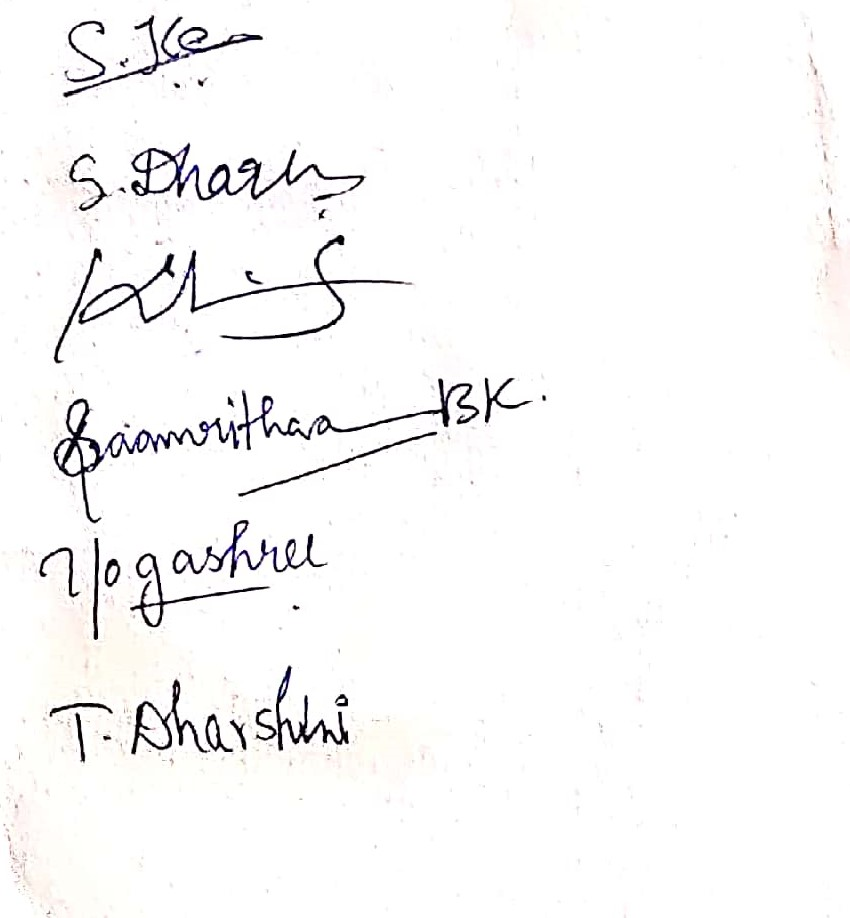 S.Ke
S.Dhar
Saamrithaa BK.
Yogashree
T. Dharshini